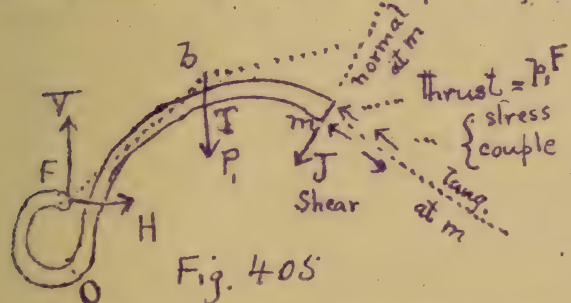 normal
at m
b
V
Thrust = P₁F
stress
couple
m
I
P₁
J
Shear
Tang.
at m
F
H
O
Fig. 405